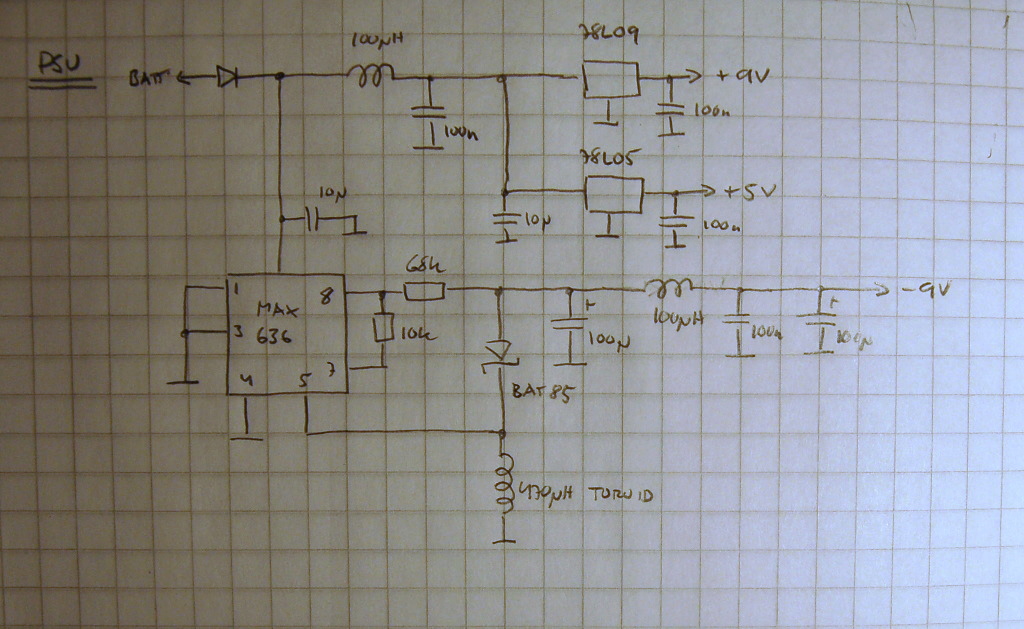 PSU
BATT
100µH
78L09
+9V
100n
100n
78L05
+5V
10µ
10µ
100n
68k
1
8
MAX
636
3
10k
7
4
5
100µ
100µH
100n
100µ
-9V
BAT85
470µH TOROID